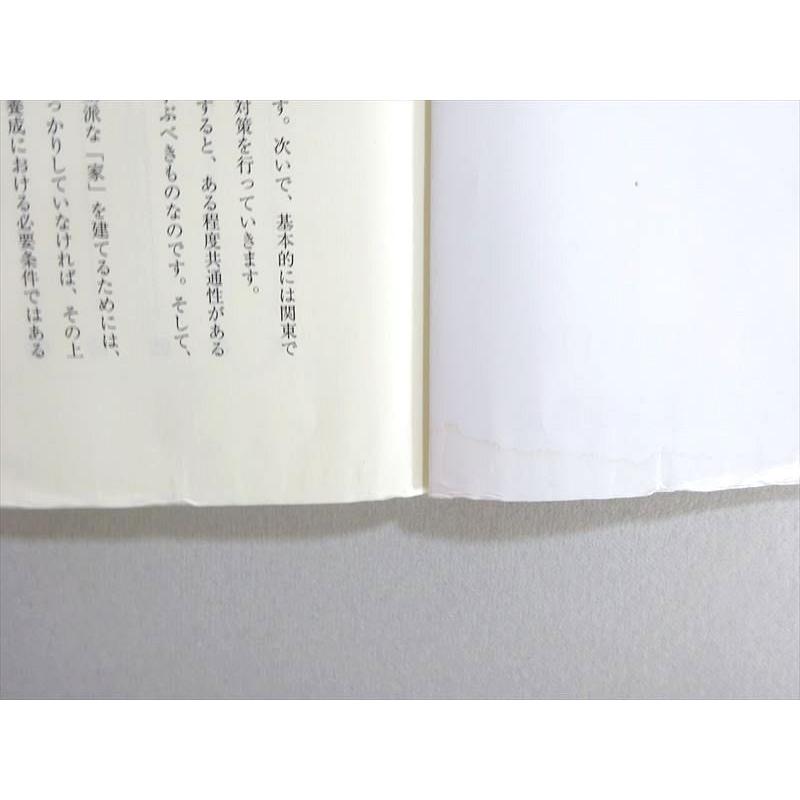 す。次いで、基本的には関東で
対策を行っていきます。
すると、ある程度共通性がある
ぶべきものなのです。そして、
派な「家」を建てるためには、
っかりしていなければ、その上
養成における必要条件ではある